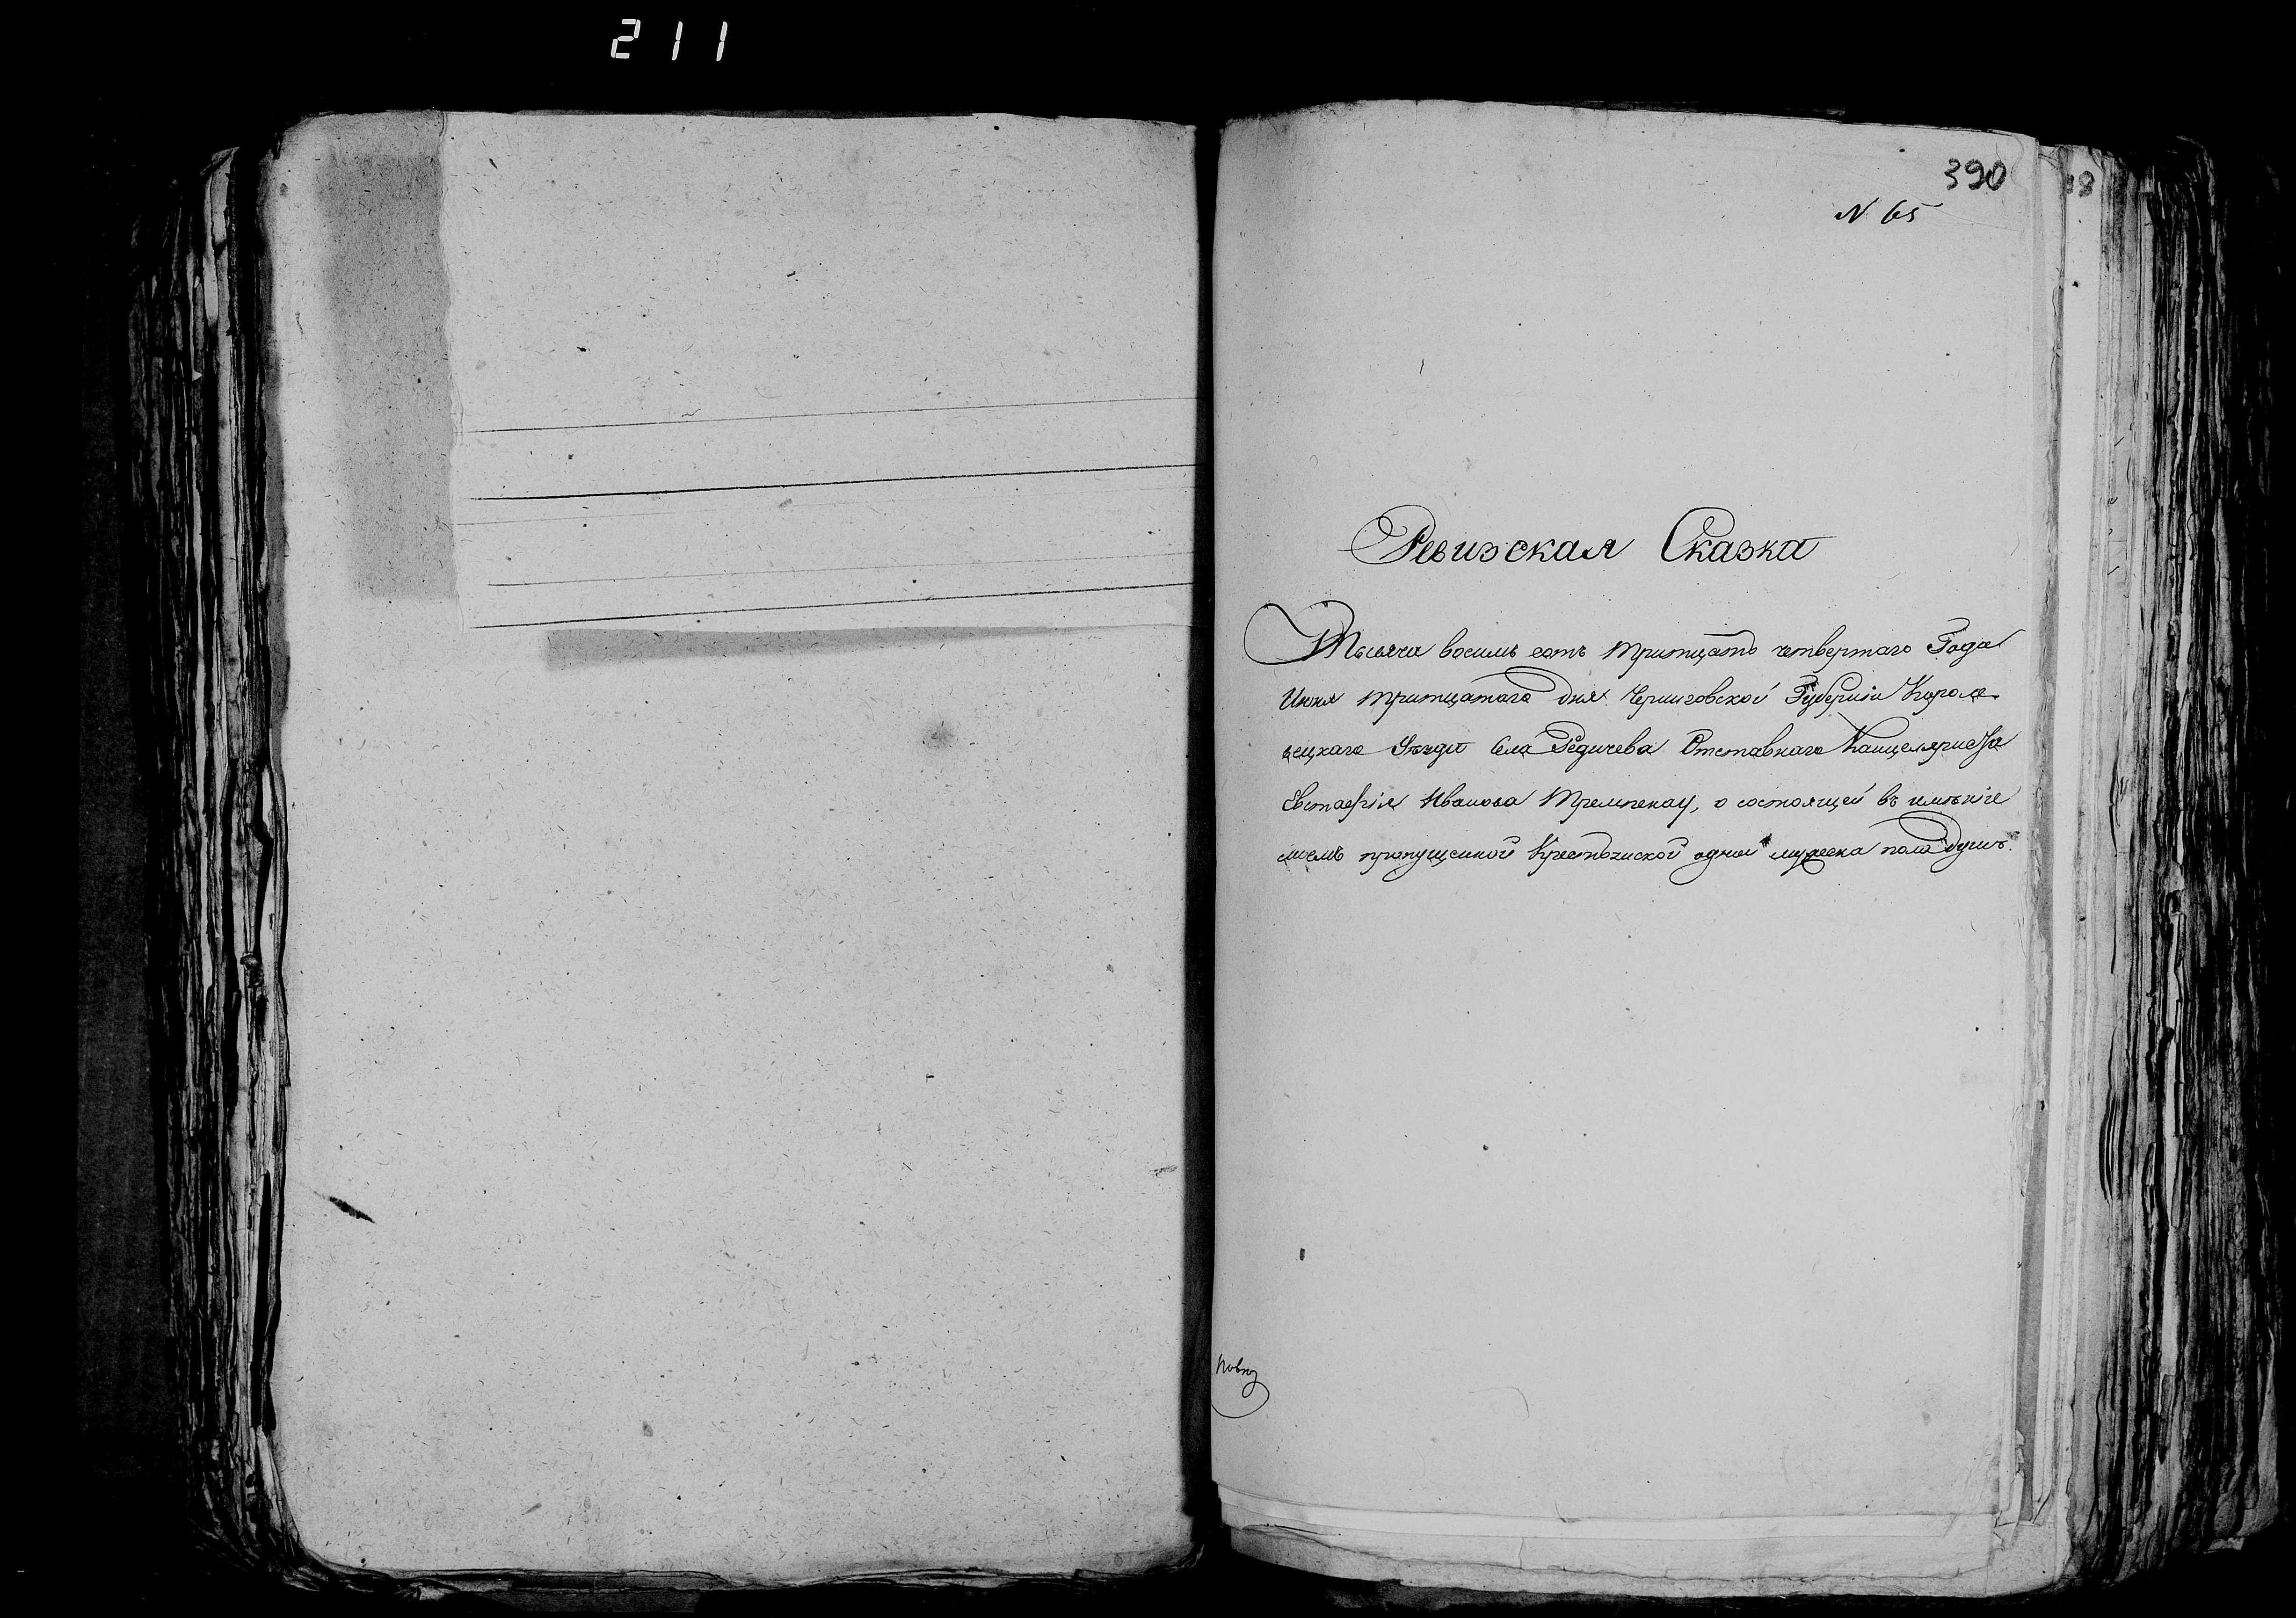 211
390
N 65
Ревизская Сказка
Тысяча восимь сотъ тритцать четвертаго Года
Июня тритцатаго дня Черниговской Губернии Короле
вецкаго Уезда Села Редичева Отставнаго Канцеляриста
Евстафія Иванова, о состоящей въ именіе
моемъ пропущеной Крестьянской одной мужеска пола душъ.